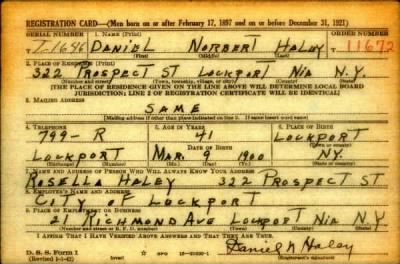 REGISTRATION CARD—(Men born on or after February 17, 1897 and on or before December 31, 1921)
SERIAL NUMBER 1. NAME (Print) ORDER NUMBER
T-1646 DANIEL NORBERT HALEY 11672
(First) (Middle) (Last)
2. PLACE OF RESIDENCE (Print)
322 PROSPECT ST LOCKPORT NIA N.Y.
(Number and street) (Town, township, village, or city) (County) (State)
[THE PLACE OF RESIDENCE GIVEN ON THE LINE ABOVE WILL DETERMINE LOCAL BOARD
JURISDICTION; LINE 2 OF REGISTRATION CERTIFICATE WILL BE IDENTICAL]
3. MAILING ADDRESS
SAME
[Mailing address if other than place indicated on line 2. If same insert word same]
4. TELEPHONE 5. AGE IN YEARS 6. PLACE OF BIRTH
799-R 41 LOCKPORT
DATE OF BIRTH
LOCKPORT MAR. 9 1900 NY
(Exchange) (Number) (Mo.) (Day) (Yr.) (State or country)
7. NAME AND ADDRESS OF PERSON WHO WILL ALWAYS KNOW YOUR ADDRESS
ROSELLA HALEY 322 PROSPECT ST
8. EMPLOYER'S NAME AND ADDRESS
CITY OF LOCKPORT
9. PLACE OF EMPLOYMENT OR BUSINESS
21 RICHMOND AVE LOCKPORT NIA N.Y
(Number and street or R. F. D. number) (Town) (County) (State)
I AFFIRM THAT I HAVE VERIFIED ABOVE ANSWERS AND THAT THEY ARE TRUE.
D. S. S. Form 1
(Revised 1-1-42) GPO Daniel N Haley
(Registrant's signature)